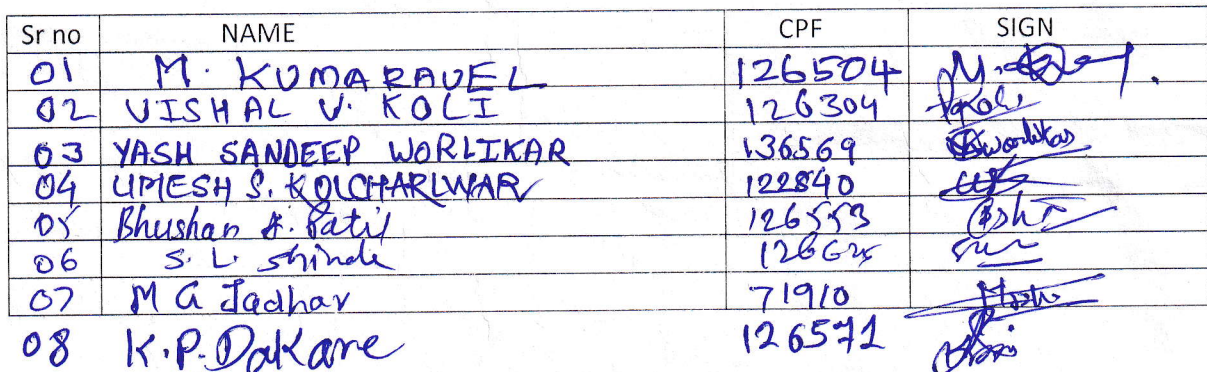 Sr no NAME CPF SIGN
01 M. KUMARAVEL 126504
02 VISHAL V. KOLI 126304
03 YASH SANDEEP WORLIKAR 136569
04 UMESH S. KOLCHARLWAR 122840
05 Bhushan Patil 126553
06 S. L. Shinde
07 M G Jadhav 71910
08 K.P. Dakare 126571